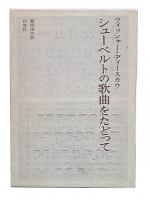 フィッシャー=ディースカウ
シューベルトの歌曲をたどって
原田茂生訳
白水社